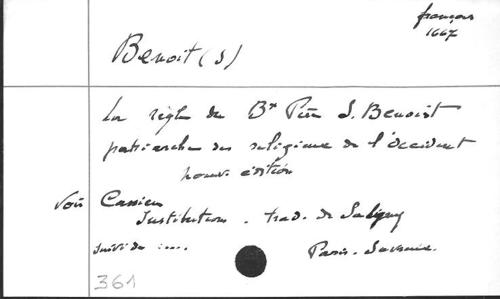 français
1667
Benoit (S)
La règle du Bx Père S. Benoist
patriarche des religieux de l'Occident
nouv. édition
Voir Cassien
Institutions. trad. de Saligny
suivi de ....
Paris. Savreux.
361